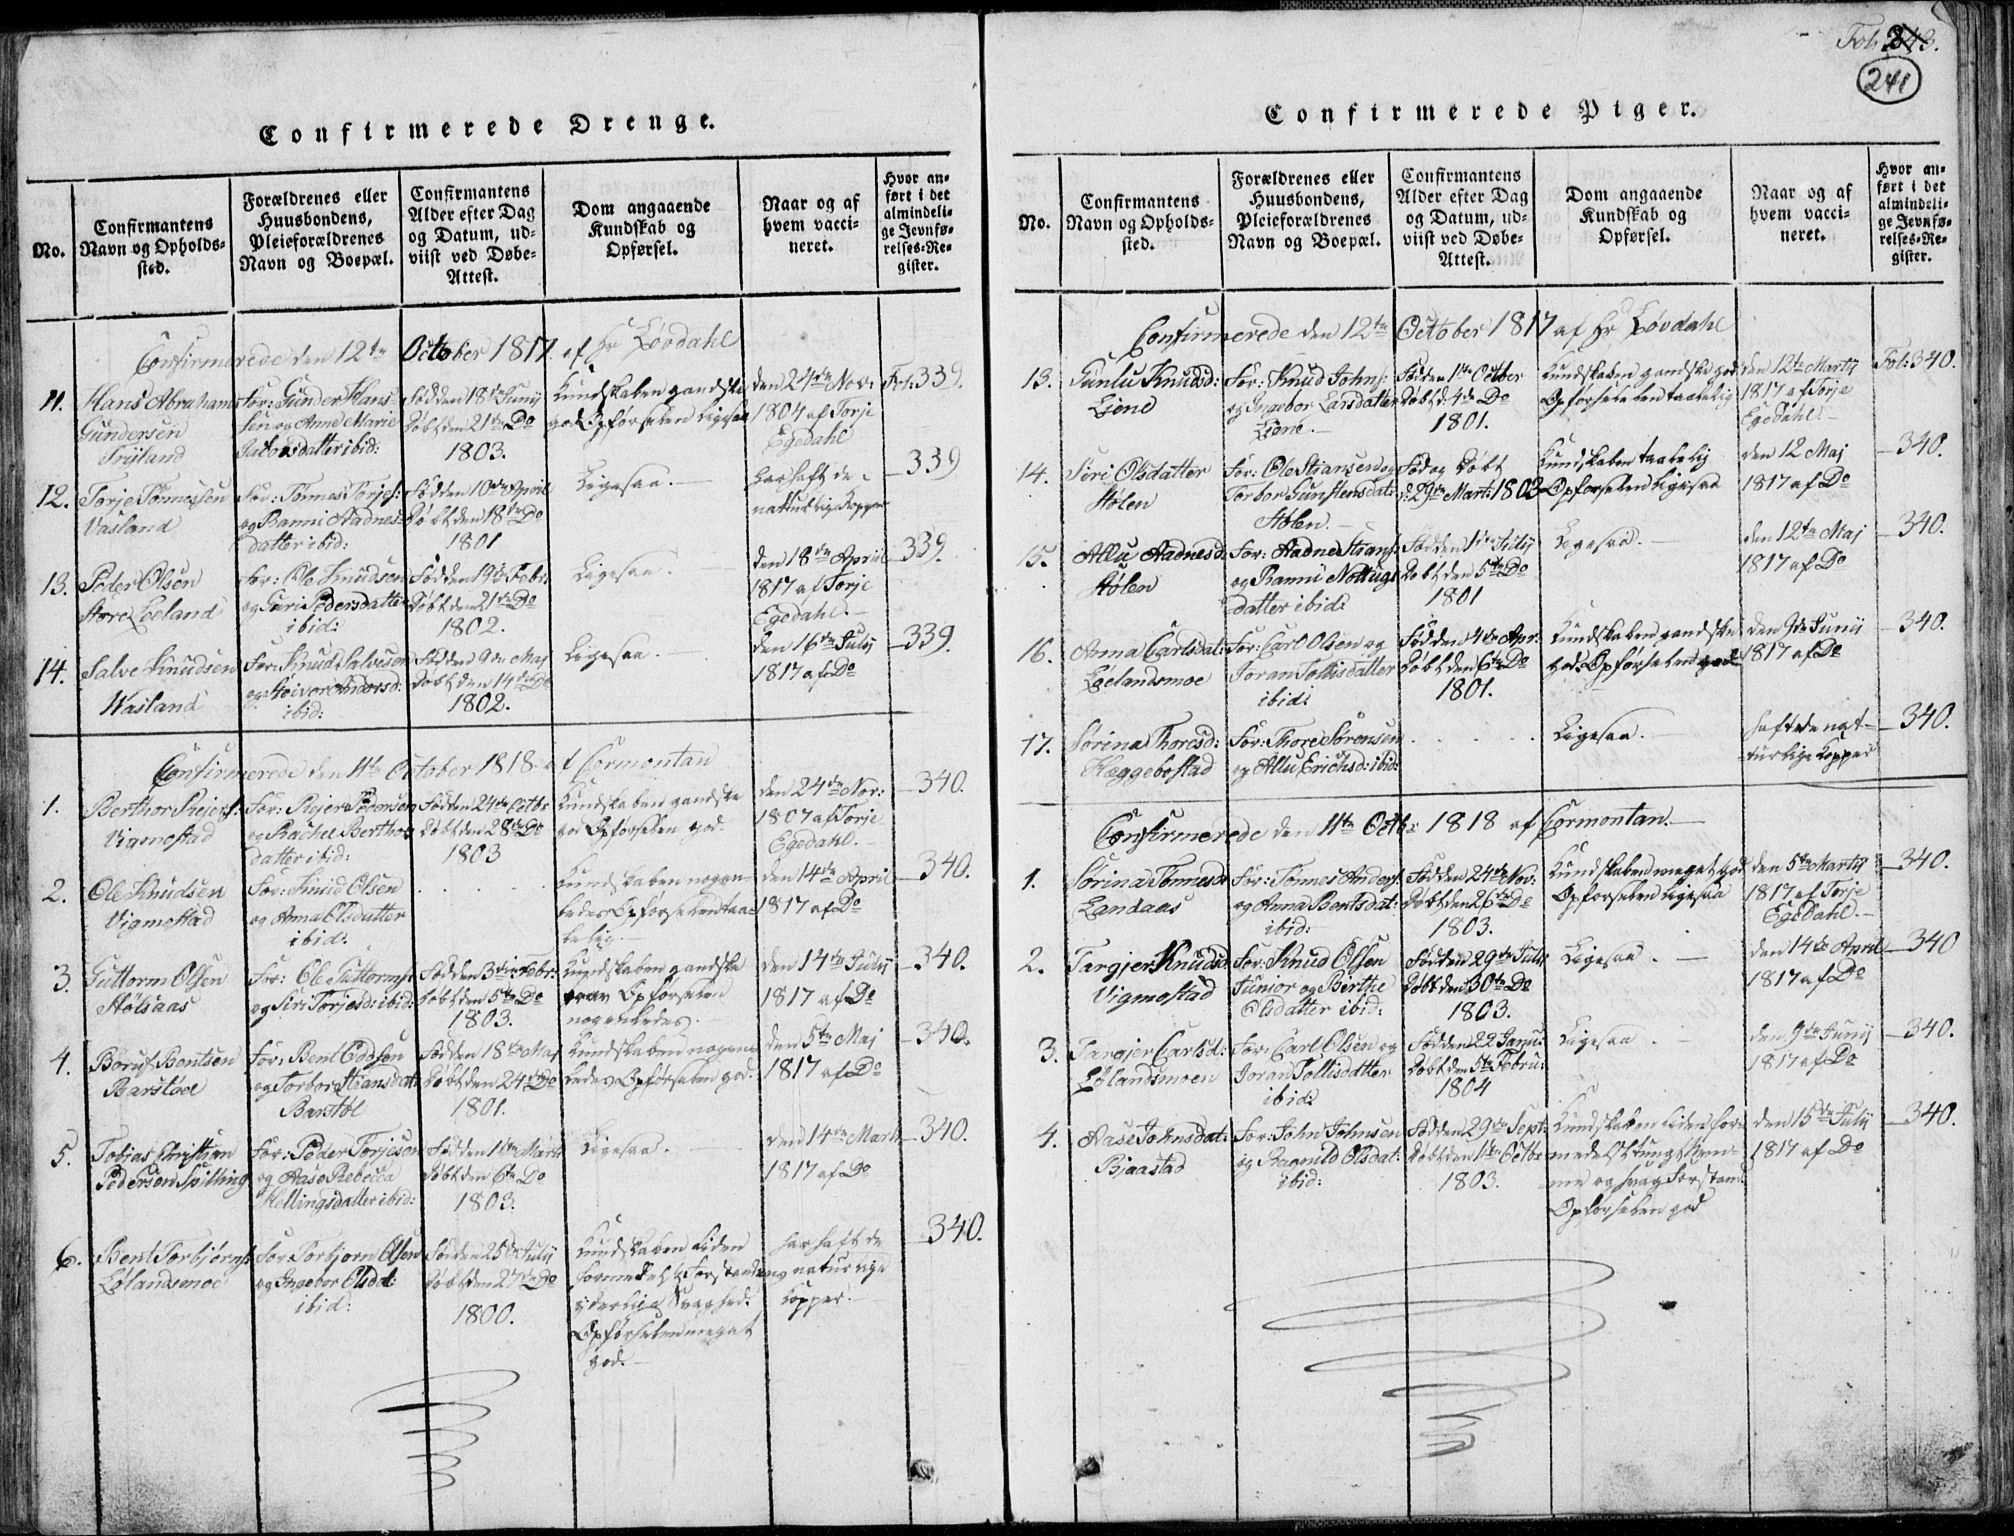 Confirmerede Drenge.
No.
Confirmantens
Navn og Opholds-
sted.
Forældrenes eller
Huusbondens,
Pleieforældrenes
Navn og Boepæl.
Confirmantens
Alder efter Dag
og Datum, ud-
viist ved Døbe-
Attest.
Dom angaaende
Kundskab og
Opførsel.
Naar og af
hvem vacci-
neret.
Hvor an-
ført i det
almindeli-
ge Jevnfø-
relses-Re-
gister.
Confirmerede den 12te October 1817 af Hr Løvdahl
11.
Hans Abraham
Gundersen
Trijland
For: Gunder Hans
sen og Anne Marie
Jacobsdatter ibid:
Fød den 18de Junij
Døbt den 21de Do
1803.
Kundskaben gandske
god Opførselen ligesaa
den 24de Nov:
1804 af Torje
Egedahl
Fol: 339.
12.
Torje Tønnessen
Vasland
For: Tønnes Torjes:
og Ranni Aadnes-
datter ibid:
Fød den 10de April
Døbt den 18de Do
1801
Ligesaa.
har haft de
naturlige Kopper
339
13.
Peder Olsen
Store Leeland
For: Ole Knudsen
og Guri Pedersdatter
ibid:
Fød den 19de Febr:
Døbt den 21de Do
1802.
Ligesaa.
den 18de April
1817 af Torje
Egedahl.
339.
14.
Salve Knudsen
Wasland
For: Knud Salvesen
og Støivor Andersd:
ibid:
Fød den 9de Maj
Døbt den 14de Do
1802.
Ligesaa.
den 16de Julij
1817 af Do
339.
Confirmerede den 11te October 1818 af Cormontan
1.
Berthor Reiers:
Vigmostad
For: Reier Pedersen
og Rachel Berthor
datter ibid:
Fød den 24de Octbr
Døbt den 28de Do
1803
Kundskaben gandske
god Opførselen god.
den 24de Nov:
1807 af Torje
Egedahl.
340.
2.
Ole Knudsen
Vigmostad
For: Knud Olsen
og Anna Olsdatter
ibid:
Kundskaben nogen-
ledes Opførselen taa-
lelig.
den 14de April
1817 af Do
340.
3.
Guttorm Olsen
Stølsaas
For: Ole Guttorms:
og Siri Torjesd: ibid:
Fød den 3die Febr:
Døbt den 5te Do
1803.
Kundskaben gandske
brav Opførselen
nogenledes.
den 14de Julij
1817 af Do
340.
4.
Boruf Bentsen
Barstoel
For: Bent Oddsen
og Torbor Stiansdat:
Barstøl
Fød den 18de Maj
Døbt den 24de Do
1801.
Kundskaben nogen-
ledes Opførselen god.
den 5te Maj
1817 af Do
340.
5.
Tobias Christian
Pedersen Spilling
For: Peder Torjesen
og Aase Rebecca
Hellingsdatter ibid:
Fød den 1de Marti
Døbt den 6te Do
1803.
Ligesaa.
den 14de Marti
1817 af Do
340.
6.
Bent Torbjørns:
Lølandsmoe
For Torbjørn Olsen
og Ingebor Olsdat:
ibid:
Fød den 25de Julij
Døbt den 27de Do
1800.
Kundskaben liden
formedelst Forstandens
yderlige Svaghed.
Opførselen meget
god.
har haft de
naturlige
Kopper.
340.
Fol: 243.
241
Confirmerede Piger.
No.
Confirmantens
Navn og Opholds-
sted.
Forældrenes eller
Huusbondens,
Pleieforældrenes
Navn og Boepæl.
Confirmantens
Alder efter Dag
og Datum, ud-
viist ved Døbe-
Attest.
Dom angaaende
Kundskab og
Opførsel.
Naar og af
hvem vacci-
neret.
Hvor an-
ført i det
almindeli-
ge Jevnfø-
relses-Re-
gister.
Confirmerede den 12te October 1817 af Hr Løvdahl
13.
Gunlu Knudsd:
Liene
For: Knud Johns:
og Ingebor Larsdatter
Liene.
Fød den 1de Octber
Døbt d: 4de Do
1801.
Kundskaben gandske god
Opførselen taalelig
den 12te Martij
1817 af Torje
Egedahl.
Fol: 340.
14.
Siri Olsdatter
Stølen
For: Ole Stiansen og
Torbor Gunstensdat:
Stølen.
Fød og Døbt
d: 29de Mart: 1802
Kundskaben taalelig
Opførselen ligesaa
den 12 Maj
1817 af Do
340.
15.
Allu Aadnesd:
Stølen
For: Aadne Stians:
og Ranni Nottugs
datter ibid:
Fød den 1de Julij
Døbt den 5te Do
1801
Ligesaa.
den 12te Maj
1817 af Do
340.
16.
Anna Carlsdat:
Lølandsmoe
For: Carl Olsen og
Joran Tollisdatter
ibid:
Fød den 4de Apr:
Døbt den 6te Do
1801.
Kundskaben gandske
god. Opførselen god
den 9de Junij
1817 af Do
340.
17.
Sørina Thoresd:
Hæggebostad
For: Thore Sørensen
og Allu Erichsd: ibid:
Ligesaa.
haft de nat-
turlige Kopper
340.
Confirmerede den 11te Octbr 1818 af Cormontan.
1.
Sørina Tønnesd
Landaas
For: Tønnes Anders:
og Anna Bentsdat:
ibid:
Fød den 24de Nov:
Døbt den 26de Do
1803.
Kundskaben meget god
Opførselen ligesaa
den 5te Martij
1817 af Torje
Egedahl.
340.
2.
Targier Knudsd
Vigmostad
For: Knud Olsen
Junior og Birthe
Olsdatter ibid:
Fød den 29de Julij
Døbt den 30te Do
1803.
Ligesaa.
den 14de April
1817 af Do
340
3.
Targier Carlsd:
Lølandsmoen
For: Carl Olsen og
Joran Tollisdatter
ibid:
Fød den 22 Janu:
Døbt den 5te Febru:
1804
Ligesaa.
den 9de Junij
1817 af Do
340.
4.
Aase Johnsdat:
Bjaastad
For: John Johnsen
og Ragnild Olsdat:
ibid:
Fød den 29de Sept:
Døbt den 1de Octbr
1803.
Kundskaben liden for-
medelst tung Nem-
me og svag Forstand
Opførselen god
den 15de Julij
1817 af Do
340.